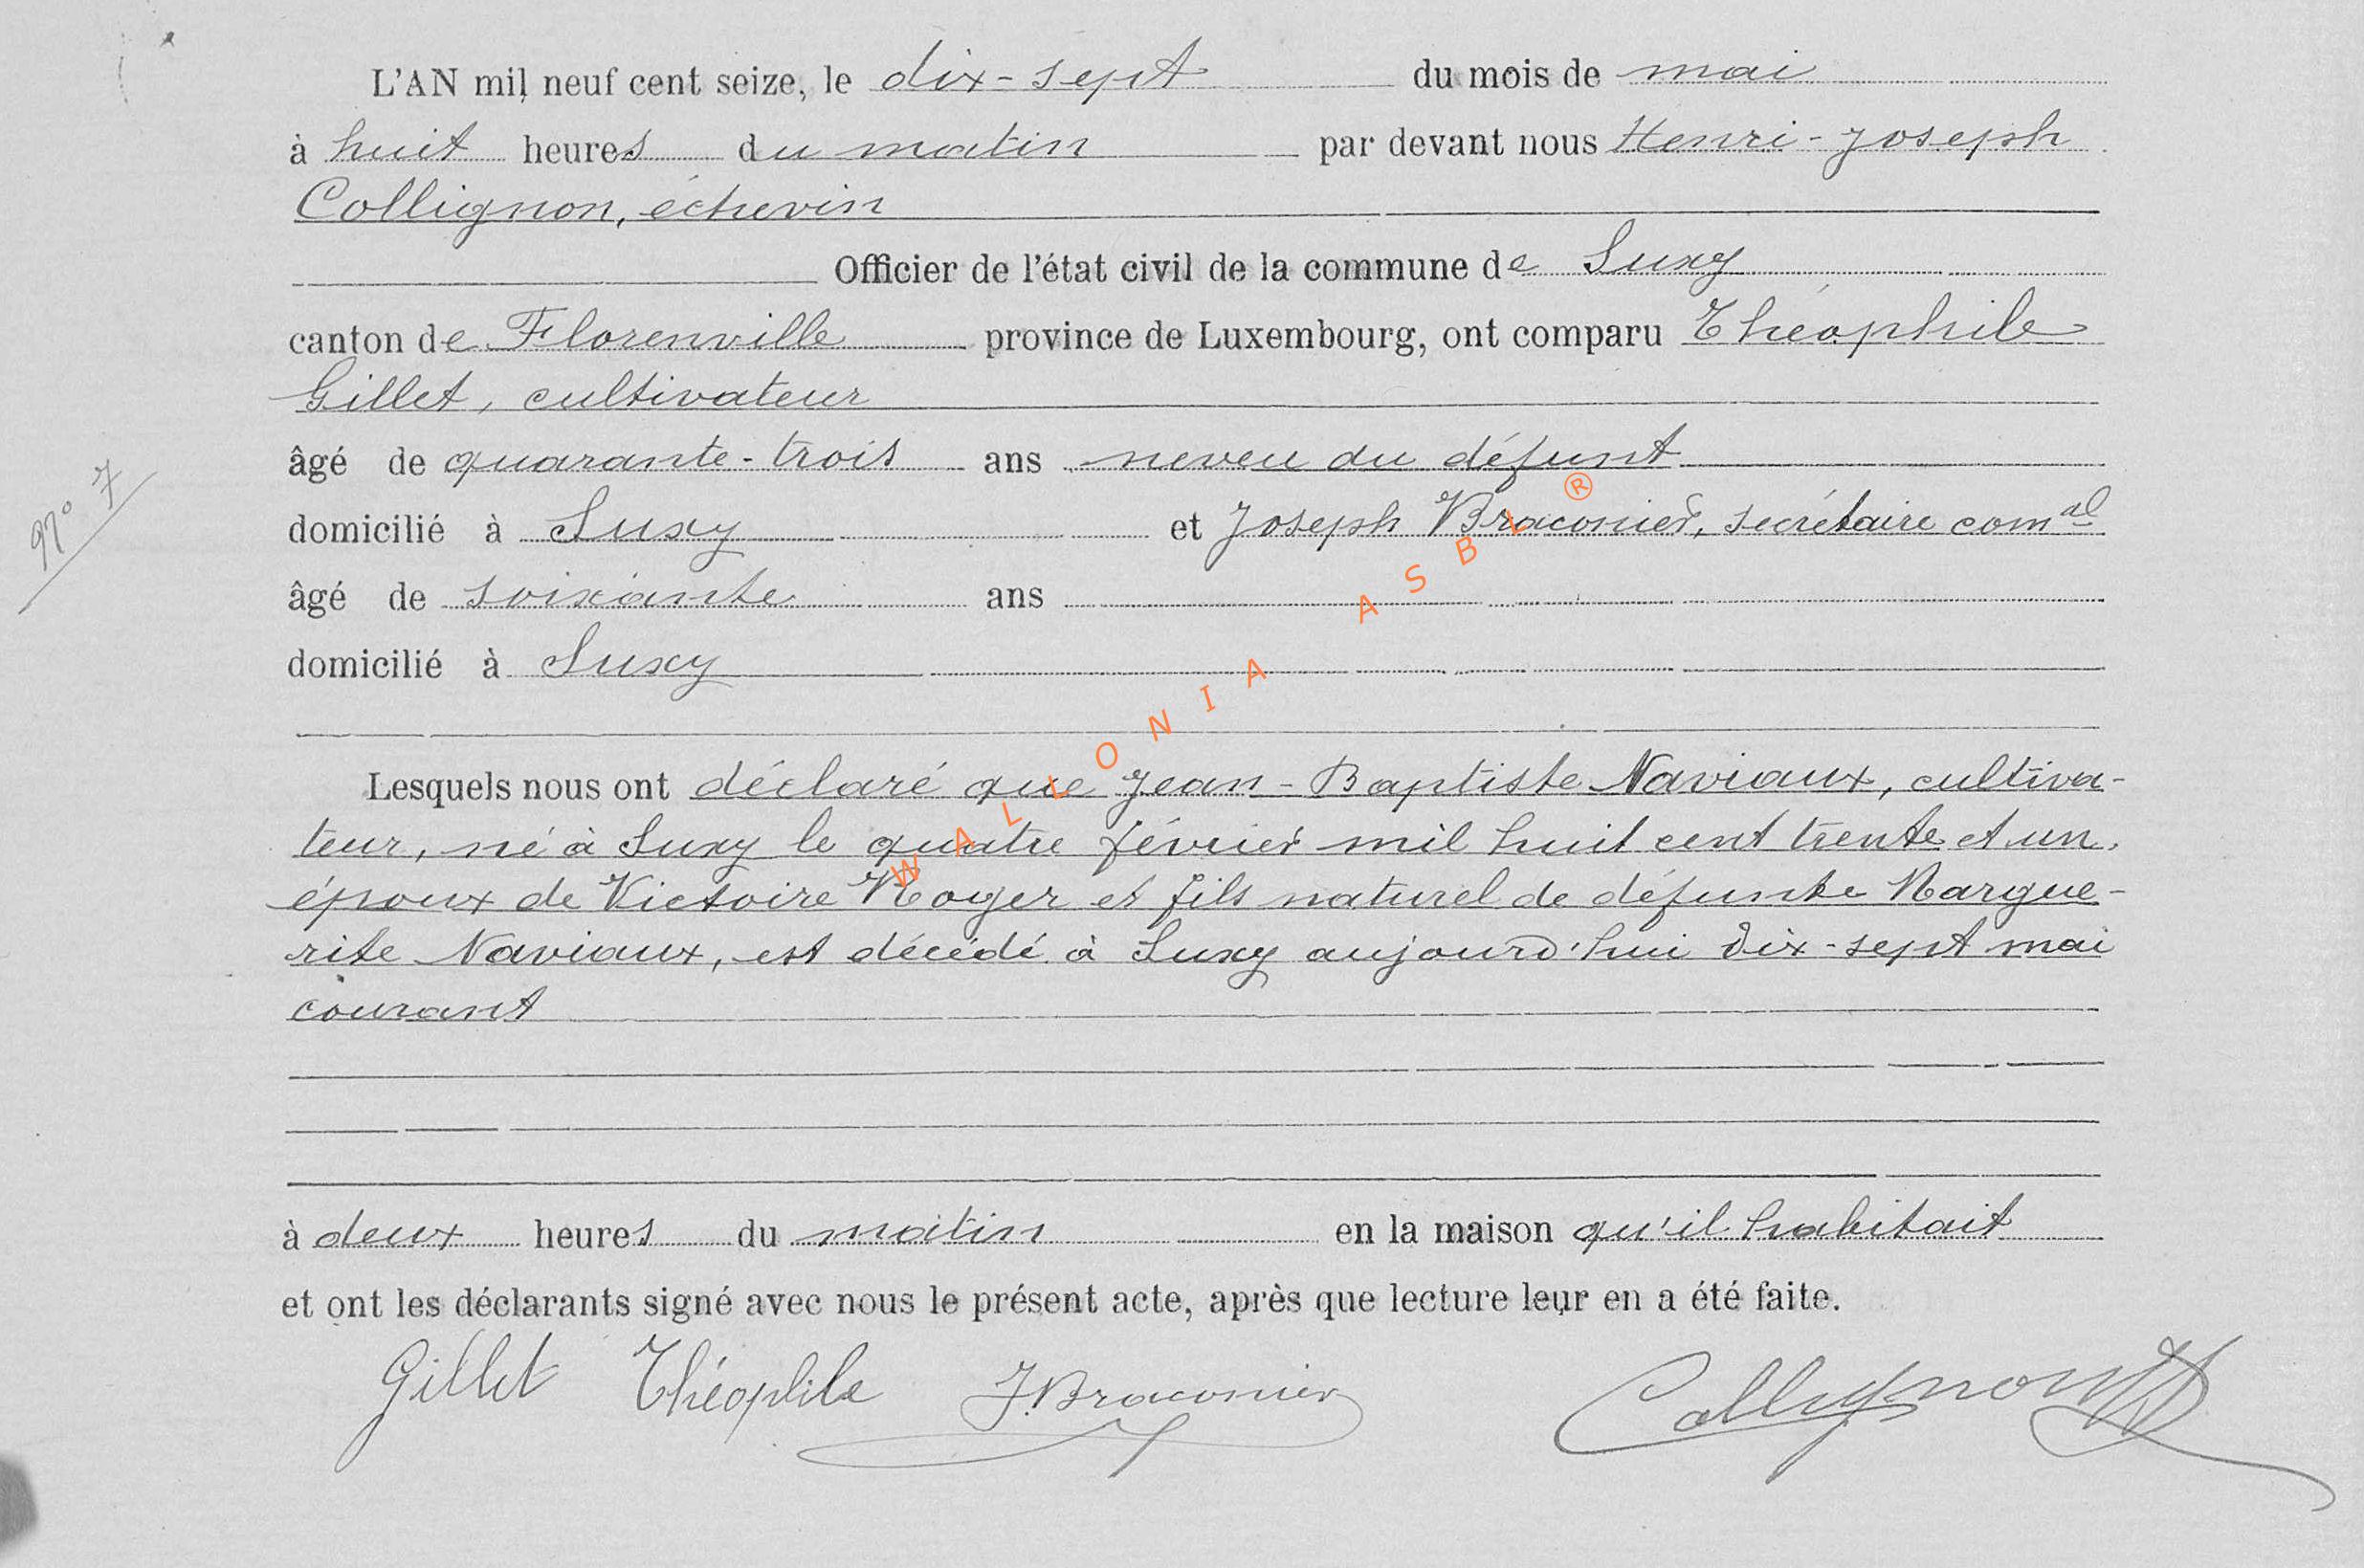 L'AN mil neuf cent seize, le dix-sept du mois de mai
à huit heures du matin par devant nous Henri-Joseph
Collignon, échevin
Officier de l'état civil de la commune de Suxy
canton de Florenville province de Luxembourg, ont comparu Théophile
Gillet, cultivateur
âgé de quarante-trois ans neveu du défunt
N° 7
domicilié à Suxy et Joseph Braconier, secrétaire comal
âgé de soixante ans
domicilié à Suxy
Lesquels nous ont déclaré que Jean-Baptiste Naviaux, cultiva-
teur, né à Suxy le quatre février mil huit cent trente et un,
époux de Victoire Roger et fils naturel de défunte Margue-
rite Naviaux, est décédé à Suxy aujourd'hui dix-sept mai
courant
à deux heures du matin en la maison qu'il habitait
et ont les déclarants signé avec nous le présent acte, après que lecture leur en a été faite.
Gillet Théophile J Braconier Collignon
WALLONIA ASBL ®